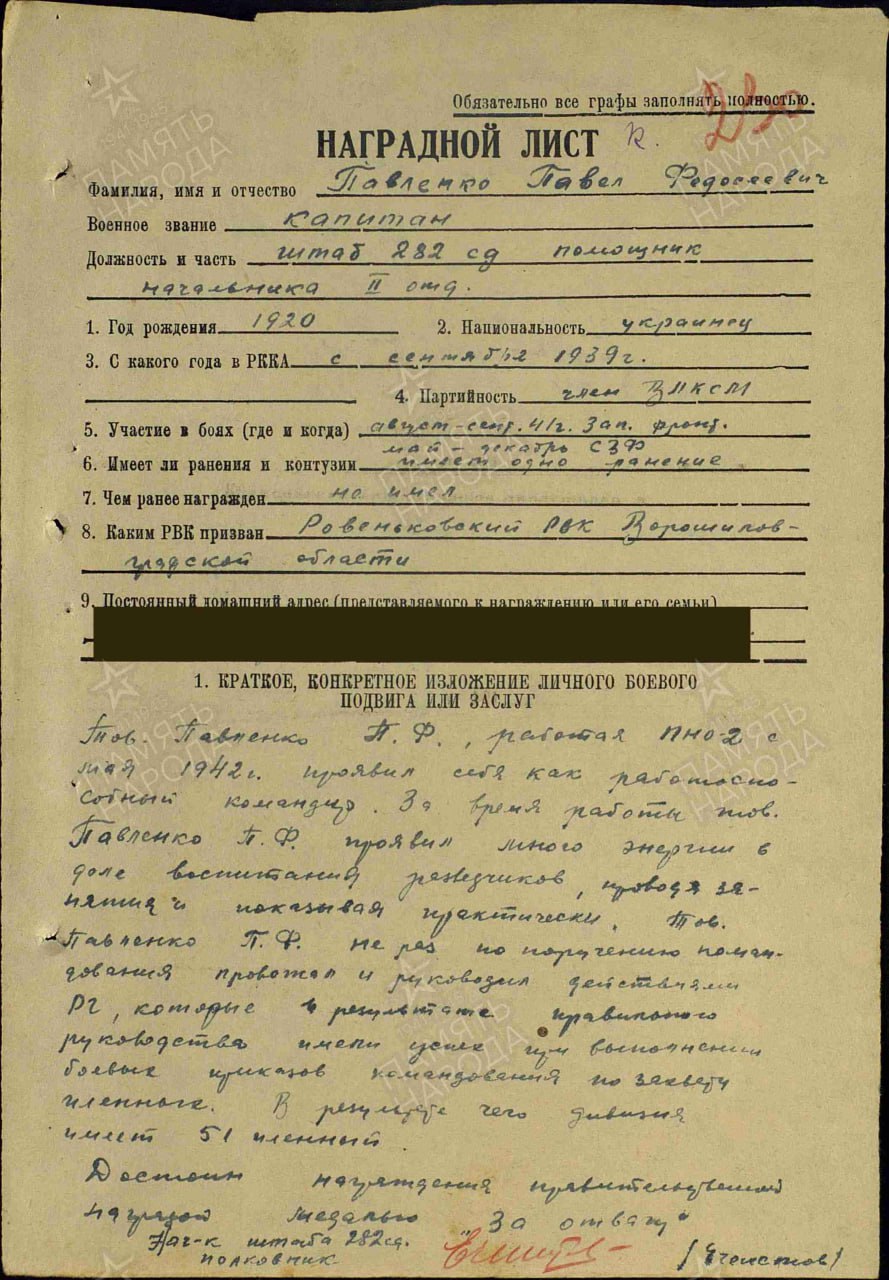 Обязательно все графы заполнять полностью.
НАГРАДНОЙ ЛИСТ к.
Фамилия, имя и отчество Павленко Павел Федосеевич
Военное звание капитан
Должность и часть штаб 282 сд помощник
начальника II отд.
1. Год рождения 1920 2. Национальность украинец
3. С какого года в РККА с сентября 1939г.
4. Партийность член ВЛКСМ
5. Участие в боях (где и когда) август-сент. 41г. Зап. фронт.
май - декабрь СЗФ
6. Имеет ли ранения и контузии имеет одно ранение
7. Чем ранее награжден не имел
8. Каким РВК призван Ровеньковский РВК Ворошилов-
градской области
9. Постоянный домашний адрес (представляемого к награждению или его семьи)
1. КРАТКОЕ, КОНКРЕТНОЕ ИЗЛОЖЕНИЕ ЛИЧНОГО БОЕВОГО
ПОДВИГА ИЛИ ЗАСЛУГ
Тов. Павленко П. Ф., работая ПНО-2 с
мая 1942г. проявил себя как работоспо-
собный командир. За время работы тов.
Павленко П. Ф. проявил много энергии в
деле воспитания разведчиков, проводя за-
нятия и показывая практически. Тов.
Павленко П. Ф. не раз по поручению коман-
дования провожал и руководил действиями
РГ, которые в результате правильного
руководства имели успех при выполнении
боевых приказов командования по захвату
пленных. В результате чего дивизия
имеет 51 пленный
Достоин награждения правительственной
наградой медалью "За отвагу"
Нач-к штаба 282сд.
полковник
ПАМЯТЬ НАРОДА